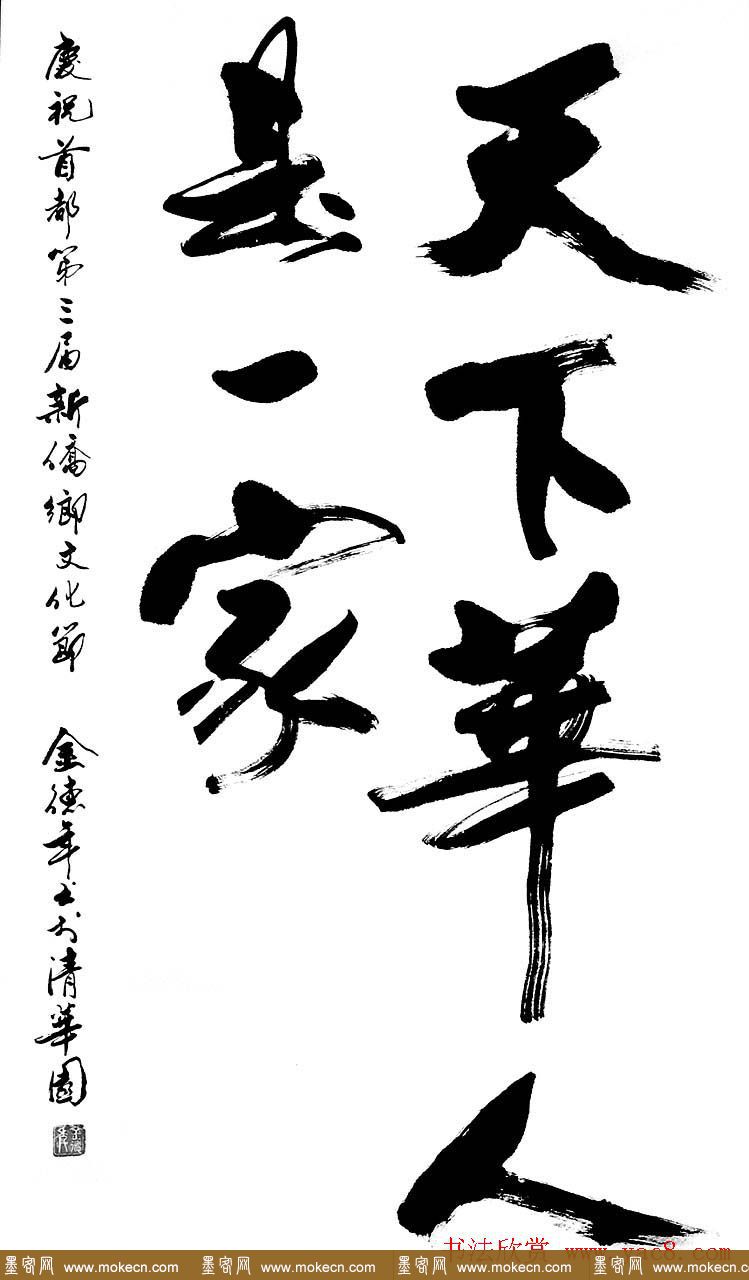 天下華人
是一家
慶祝首都第三届新僑鄉文化節 金德年书於清華園
书法欣赏 www.yac8.com
墨客网 www.mokecn.com 墨客网 www.mokecn.com 墨客网 www.mokecn.com 墨客网 www.mokecn.com